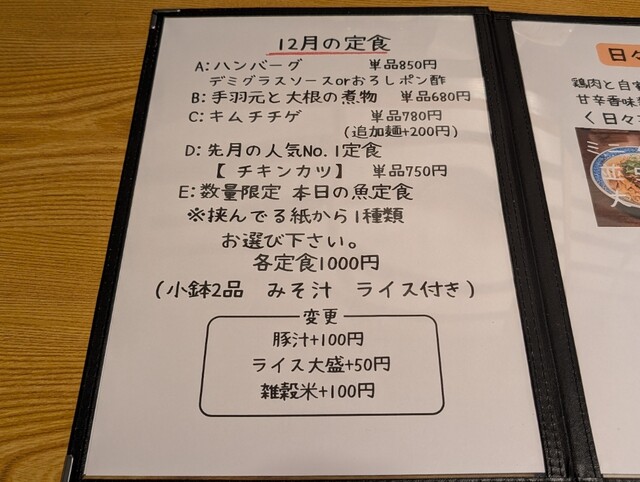 12月の定食
A:ハンバーグ 単品850円
デミグラスソースorおろしポン酢
B:手羽元と大根の煮物 単品680円
C:キムチチゲ 単品780円
(追加麺+200円)
D:先月の人気No.1定食
【 チキンカツ 】 単品750円
E:数量限定 本日の魚定食
※挟んでる紙から1種類
お選び下さい。
各定食1000円
(小鉢2品 みそ汁 ライス付き)
変更
豚汁+100円
ライス大盛+50円
雑穀米+100円
日々
鶏肉と自家
甘辛香味
く日々